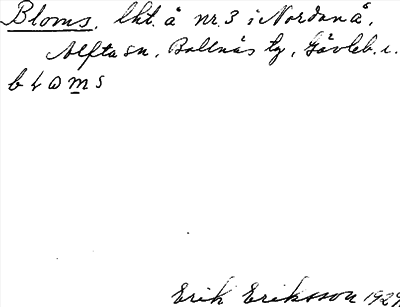 Bloms. lht. å nr. 3 i Nordanå,
Alfta sn, Bollnäs tg, Gävleb. l.
bloms
Erik Eriksson 1929